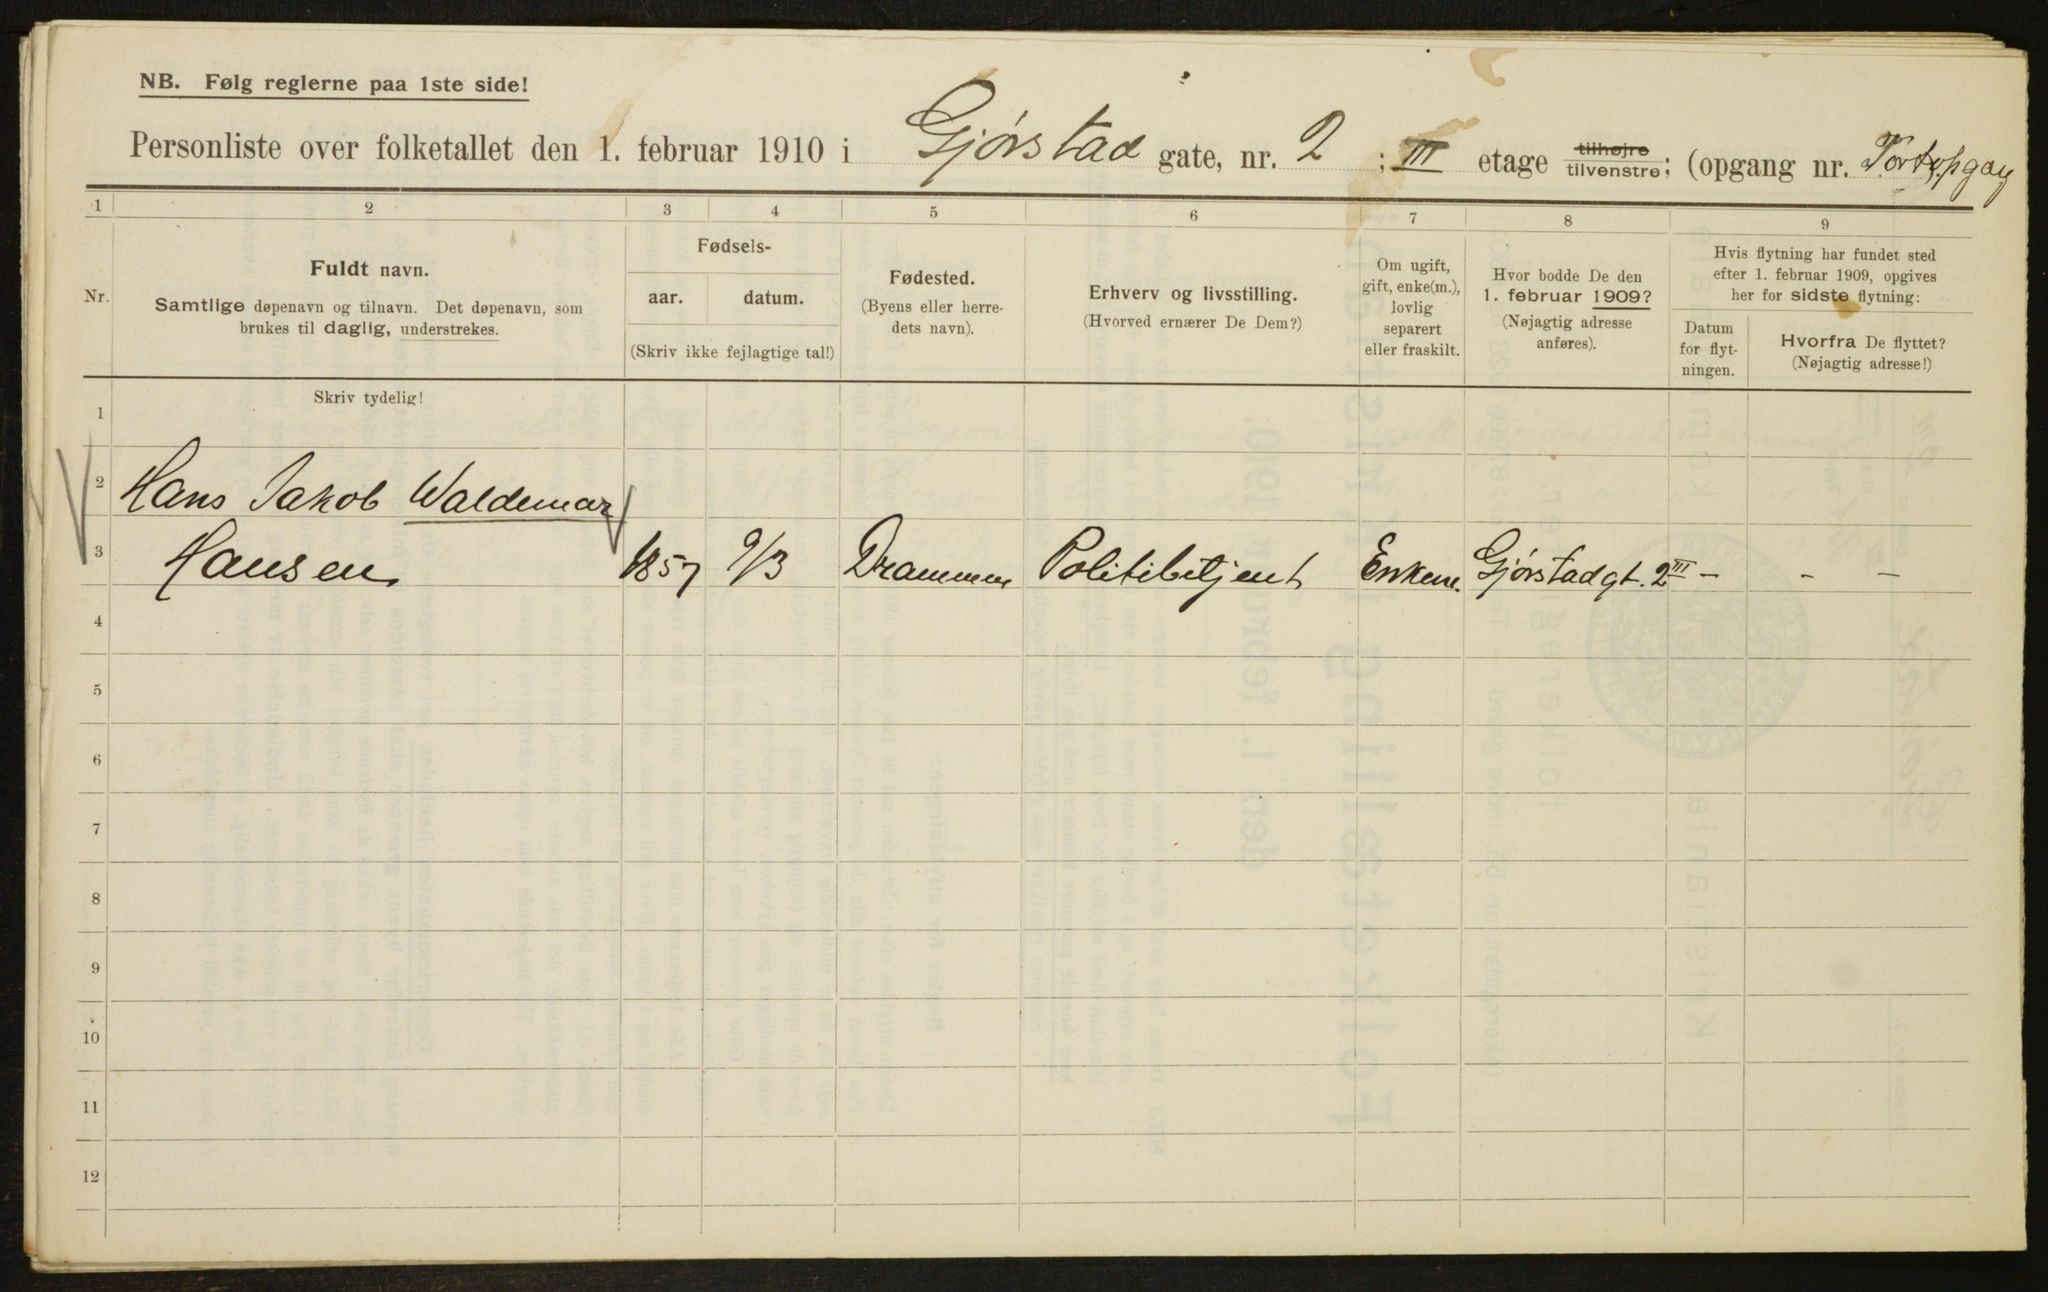 NB. Følg reglerne paa 1ste side!
Personliste over folketallet den 1. februar 1910 i Gjørstad gate, nr. 2 ; III etage tilhøjre/tilvenstre; (opgang nr. Portopgang
1 2 3 4 5 6 7 8 9
Nr.
Fuldt navn.
Samtlige døpenavn og tilnavn. Det døpenavn, som
brukes til daglig, understrekes.
Fødsels-
aar. datum.
(Skriv ikke fejlagtige tal!)
Fødested.
(Byens eller herre-
dets navn).
Erhverv og livsstilling.
(Hvorved ernærer De Dem?)
Om ugift,
gift, enke(m.),
lovlig
separert
eller fraskilt.
Hvor bodde De den
1. februar 1909?
(Nøjagtig adresse
anføres).
Hvis flytning har fundet sted
efter 1. februar 1909, opgives
her for sidste flytning:
Datum
for flyt-
ningen.
Hvorfra De flyttet?
(Nøjagtig adresse!)
Skriv tydelig!
1
2 Hans Jakob Waldemar
3 Hansen 1857 9/3 Drammen Politibetjent Enkem. Gjørstadgt. 2 III - - -
4
5
6
7
8
9
10
11
12